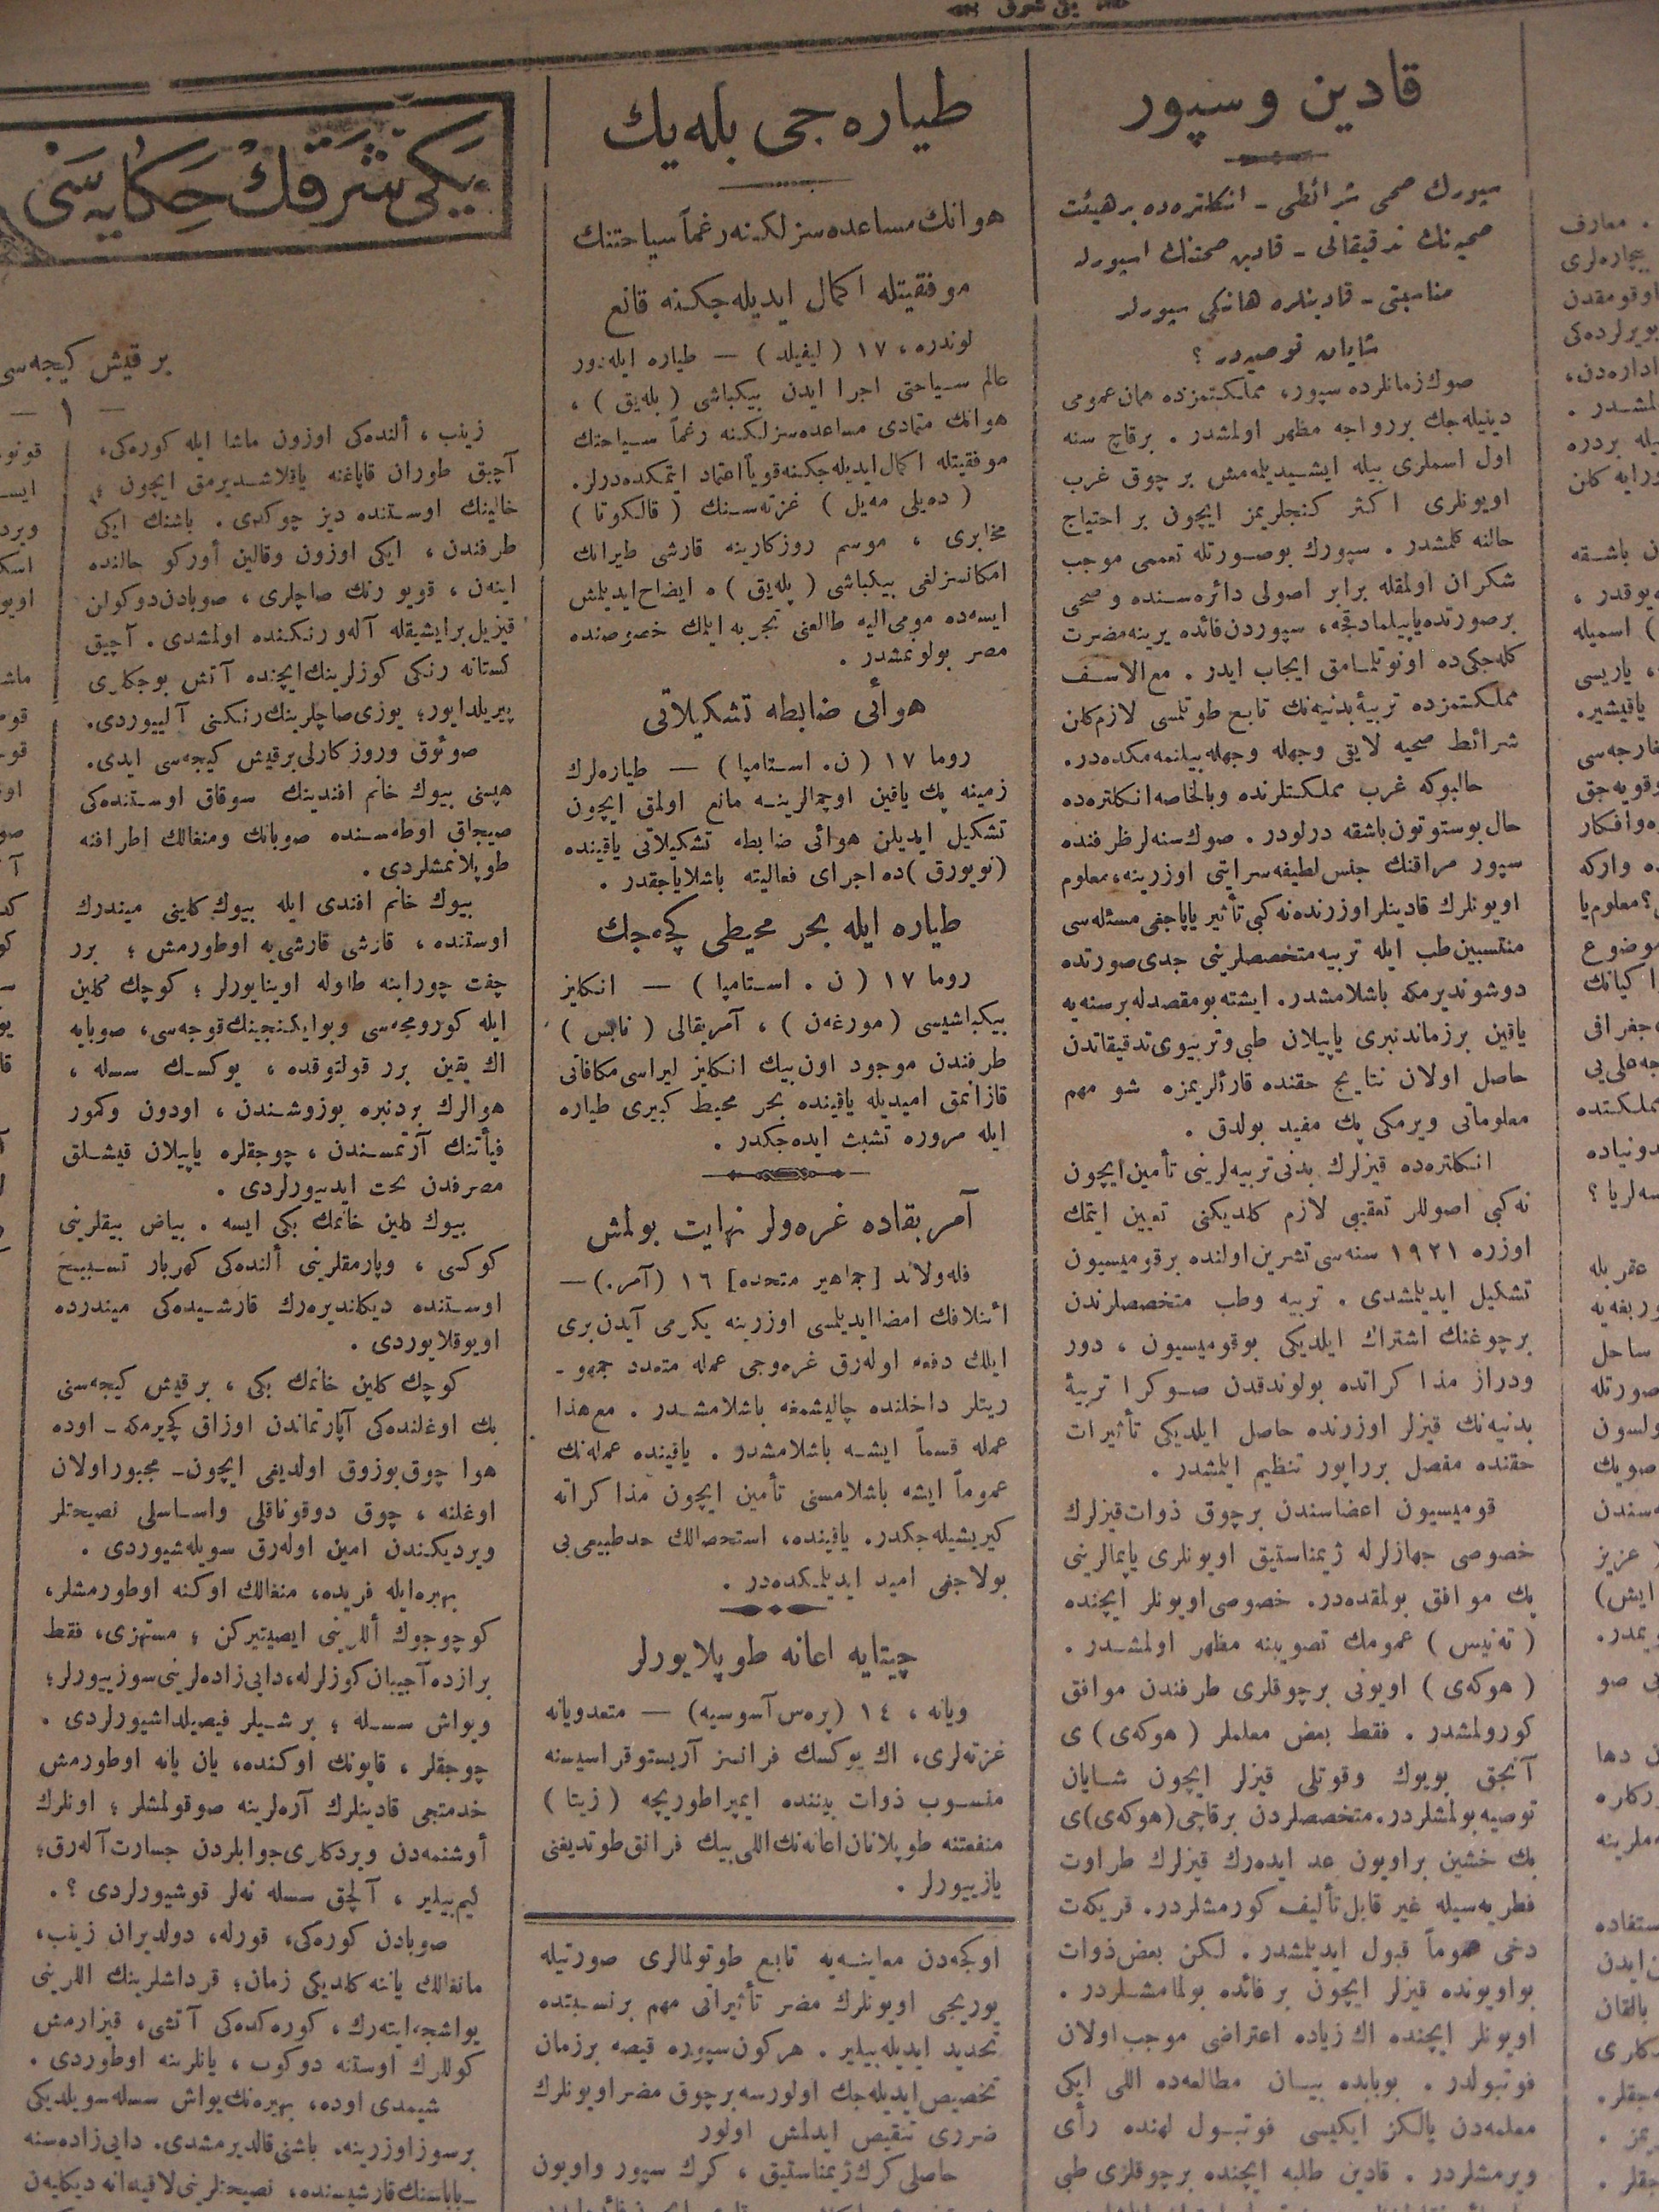 یكی شرق
قادین وسپور
سپورك صحی شرائطی ـ انكلتره‌ده بر هیئت
صحیه‌نك تدقیقاتی ـ قادین صحتنك اسپورله
مناسبتی ـ قادینلره هانكی سپورلر
شایان توصیه‌در ؟
صوك زمانلرده سپور، مملكتمزده همان عمومی
دینیله‌جك بر رواجه مظهر اولمشدر . برقاچ سنه
اول اسملری بیله ایشیدیلمه‌مش بر چوق غرب
اویونلری اكثر كنجلریمز ایچون بر احتیاج
حالنه كلمشدر . سپورك بوصورتله تعممی موجب
شكران اولمقله برابر اصولی دائره‌سنده و صحی
برصورتده یاپیلمادقجه، سپوردن فائده یرینه مضرت
كله‌جكی ده اونوتلمامق ایجاب ایدر . مع‌الاسف
مملكتمزده تربیهٔ بدنیه‌نك تابع طوتلمسی لازم‌كلن
شرائط صحیه لایقی وجهله وجهله بیلنمه‌مكده‌در.
حالبوكه غرب مملكتلرنده وبالخاصه انكلتره‌ده
حال بوسبتوتون باشقه درلودر . صوك سنه‌لر ظرفنده
سپور مراقنك جنس لطیفه سرایتی اوزرینه، معلوم
اویونلرك قادینلر اوزرنده نه كبی تأثیر یاپاجغی مسئله‌سی
منتسبین طب ایله تربیه متخصصلرینی جدی صورتده
دوشوندیرمكه باشلامشدر. ایشته بومقصدله برسنه‌یه
یاقین برزماندنبری یاپیلان طبی وتربیوی تدقیقاتدن
حاصل اولان نتایج حقنده قارئلریمزه شو مهم
معلوماتی ویرمكی پك مفید بولدق .
انكلتره‌ده قیزلرك بدنی تربیه‌لرینی تأمین ایچون
نه كبی اصوللر تعقیبی لازم كلدیكنی تعیین ایتمك
اوزره ١٩٢١ سنه‌سی تشرین اولنده برقومیسیون
تشكیل ایدیلمشدی . تربیه وطب متخصصلرندن
برچوغنك اشتراك ایلدیكی بوقومیسیون ، دور
ودراز مذاكراتده بولوندقدن صوكرا تربیهٔ
بدنیه‌نك قیزلر اوزرنده حاصل ایلدیكی تأثیرات
حقنده مفصل برراپور تنظیم ایلمشدر .
قومیسیون اعضاسندن برچوق ذوات قیزلرك
خصوصی جهازلرله ژیمناستیق اویونلری یاپمالرینی
پك موافق بولمقده‌در. خصوصی اویونلر ایچنده
( ته‌نیس ) عمومك تصویبنه مظهر اولمشدر .
( هوكه‌ی ) اویونی برچوقلری طرفندن موافق
كورولمشدر . فقط بعض معلملر ( هوكه‌ی ) ی
آنجق بویوك وقوتلی قیزلر ایچون شایان
توصیه بولمشلردر. متخصصلردن برقاچی (هوكه‌ی) ی
پك خشین براویون عد ایده‌رك قیزلرك طراوت
فطریه‌سیله غیر قابل تألیف كورمشلردر. قریكه‌ت
دخی عموماً قبول ایدیلمشدر . لكن بعض ذوات
بواویونده قیزلر ایچون بر فائده بولمامشلردر .
اویونلر ایچنده اك زیاده اعتراضی موجب اولان
فوتبولدر . بوبابده بیان مطالعه‌ده اللی ایكی
معلمه‌دن یالكز ایكیسی فوتبول لهنده رأی
ویرمشلردر . قادین طلبه ایچنده برچوقلری طبی
طیاره‌جی بله‌یك
هوانك مساعده‌سزلكنه رغماً سیاحتنك
موفقیتله اكمال ایدیله‌جكنه قانع
لوندره، ١٧ ( لیفیلد ) — طیاره ایله دور
عالم سیاحتی اجرا ایدن بیكباشی ( بله‌یق ) ،
هوانك متمادی مساعده‌سزلكنه رغماً سیاحتك
موفقیتله اكمال ایدیله‌جكنه قویاً اعتماد ایتمكده‌درلر.
( ده‌یلی مه‌یل ) غزته‌سنك ( قالكوتا )
مخابری ، موسم روزكارینه قارشی طیرانك
امكانسزلغی بیكباشی ( پله‌یق ) ه ایضاح ایدیلمش
ایسه‌ده مومی‌الیه طالعنی تجربه ایتمك خصوصنده
مصر بولونمشدر .
هوائی ضابطه تشكیلاتی
روما ١٧ ( ن. استامپا ) — طیاره‌لرك
زمینه پك یاقین اوچمالرینه مانع اولمق ایچون
تشكیل ایدیلن هوائی ضابطه تشكیلاتی یاقینده
(نویورق) ده اجرای فعالیته باشلایاجقدر .
طیاره ایله بحر محیطی كچه‌جك
روما ١٧ ( ن . استامپا ) — انكلیز
بیكباشیسی ( مورغه‌ن ) ، آمریقالی ( نابس )
طرفندن موجود اون بیك انكلیز لیراسی مكافاتی
قازانمق امیدیله یاقینده بحر محیط كبیری طیاره
ایله مروره تشبث ایده‌جكدر .
آمریقاده غره‌ولر نهایت بولمش
قله‌ولاند [جماهیر متحده] ١٦ (آمر.) —
ائتلافك امضا ایدیلمسی اوزرینه یكرمی آیدن بری
ایلك دفعه اوله‌رق غره‌وجی عمله متعدد جمهو ـ
ریتلر داخلنده چالیشمغه باشلامشدر . مع هذا
عمله قسماً ایشه باشلامشدر . یاقینده عمله‌نك
عموماً ایشه باشلامسنی تأمین ایچون مذاكراته
كیریشیله‌جكدر. یاقینده، استحصالك حد طبیعی‌یی
بولاجغی امید ایدیلمكده‌در .
چیتایه اعانه طوپلایورلر
ویانه ، ١٤ (پره‌س آسوسیه) — متعدویانه
غزته‌لری، اك یوكسك فرانسز آریستوقراسیسنه
منسوب ذوات بیننده ایمپراطوریچه ( زیتا )
منفعتنه طوپلانان اعانه‌نك اللی بیك فرانق طوتدیغنی
یازییورلر .
اوكجه‌دن معاینه‌یه تابع طوتولمالری صورتیله
یوریجی اویونلرك مضر تأثیراتی مهم برنسبتده
تحدید ایدیله‌بیلیر . هركون سپوره قیصه برزمان
تخصیص ایدیله‌جك اولورسه برچوق مضر اویونلرك
ضرری تنقیص ایدلمش اولور
حاصلی كرك ژیمناستیق ، كرك سپور واویون
یكی شرقك حكایه‌سی
بر قیش كیجه‌سی
— ١ —
زینب ، ألنده‌كی اوزون ماشا ایله كوره‌كی،
آچیق طوران قاپاغنه یاقلاشدیرمق ایچون ؛
خالینك اوستنده دیز چوكدی . باشنك ایكی
طرفندن ، ایكی اوزون وقالین أوركو حالنده
اینه‌ن ، قویو رنك صاچلری ، صوبادن دوكولن
قیزیل برایشیقله آله‌و رنكنده اولمشدی . آچیق
كستانه رنكی كوزلرینك ایچنده آتش بوجكلری
پیریلدایور؛ یوزی صاچلرینك رنكنی آلییوردی.
صوئوق وروزكارلی برقیش كیجه‌سی ایدی.
هپسی بیوك خانم افندینك سوقاق اوستنده‌كی
صیجاق اوطه‌سنده صوبانك ومنغالك اطرافنه
طوپلانمشلردی .
بیوك خانم افندی ایله بیوك كلینی میندرك
اوستنده ، قارشی قارشی‌یه اوطورمش ؛ برر
چفت چورابنه طاوله اوینایورلر ؛ كوچك كلین
ایله كورومجه‌سی وبوایكنجینك قوجه‌سی، صوبایه
اك یقین برر قولتوقده ، یوكسك سسله ،
هوالرك بردنبره بوزوشندن ، اودون وكمور
فیأتنك آرتمسندن ، چوجقلره یاپیلان قیشلق
مصرفدن بحث ایدییورلردی .
بیوك كلین خانمك بكی ایسه . بیاض بیقلرینی
كوكسی ، وپارمقلرینی ألنده‌كی كهربار تسبیح
اوستنده دیكلندیره‌رك قارشیده‌كی میندرده
اویوقلایوردی .
كوچك كلین خانمك بكی ، بر قیش كیجه‌سنی
بك اوغلنده‌كی آپارتماندن اوزاق كچیرمكه ـ اوده
هوا چوق بوزوق اولدیغی ایچون ـ مجبور اولان
اوغلنه ، چوق دوقوناقلی واساسلی نصیحتلر
ویردیكندن امین اوله‌رق سویله‌شیوردی .
بهیره ایله فریده، منغالك اوكنه اوطورمشلر،
كوچوجوك أللرینی ایصیتیركن ؛ مستهزی، فقط
برازده آجییان كوزلرله، دایی زاده‌لرینی سوزییورلر؛
ویواش سسله ؛ بر شیلر فیصیلداشیورلردی .
چوجقلر ، قاپونك اوكنده، یان یانه اوطورمش
خدمتجی قادینلرك آره‌لرینه صوقولمشلر ؛ اونلرك
أوشنمه‌دن ویردكلری جوابلردن جسارت آله‌رق؛
كیم بیلیر ، آلچق سسله نه‌لر قوشیورلردی ؟.
صوبادن كوره‌كی، قورله، دولدیران زینب،
مانغالك یاننه كلدیكی زمان؛ قرداشلرینك اللرینی
یواشجه ایته‌رك ، كوره‌كده‌كی آتشی، قیزارمش
كوللرك اوستنه دوكوب ، یانلرینه اوطوردی .
شیمدی اوده، بهیره‌نك یواش سسله سویلدیكی
برسوز اوزرینه. باشنی قالدیرمشدی. دایی زاده‌سنه
باباسنك قارشیسنده، نصیحتلرینی لاقیدانه دیكله‌ین